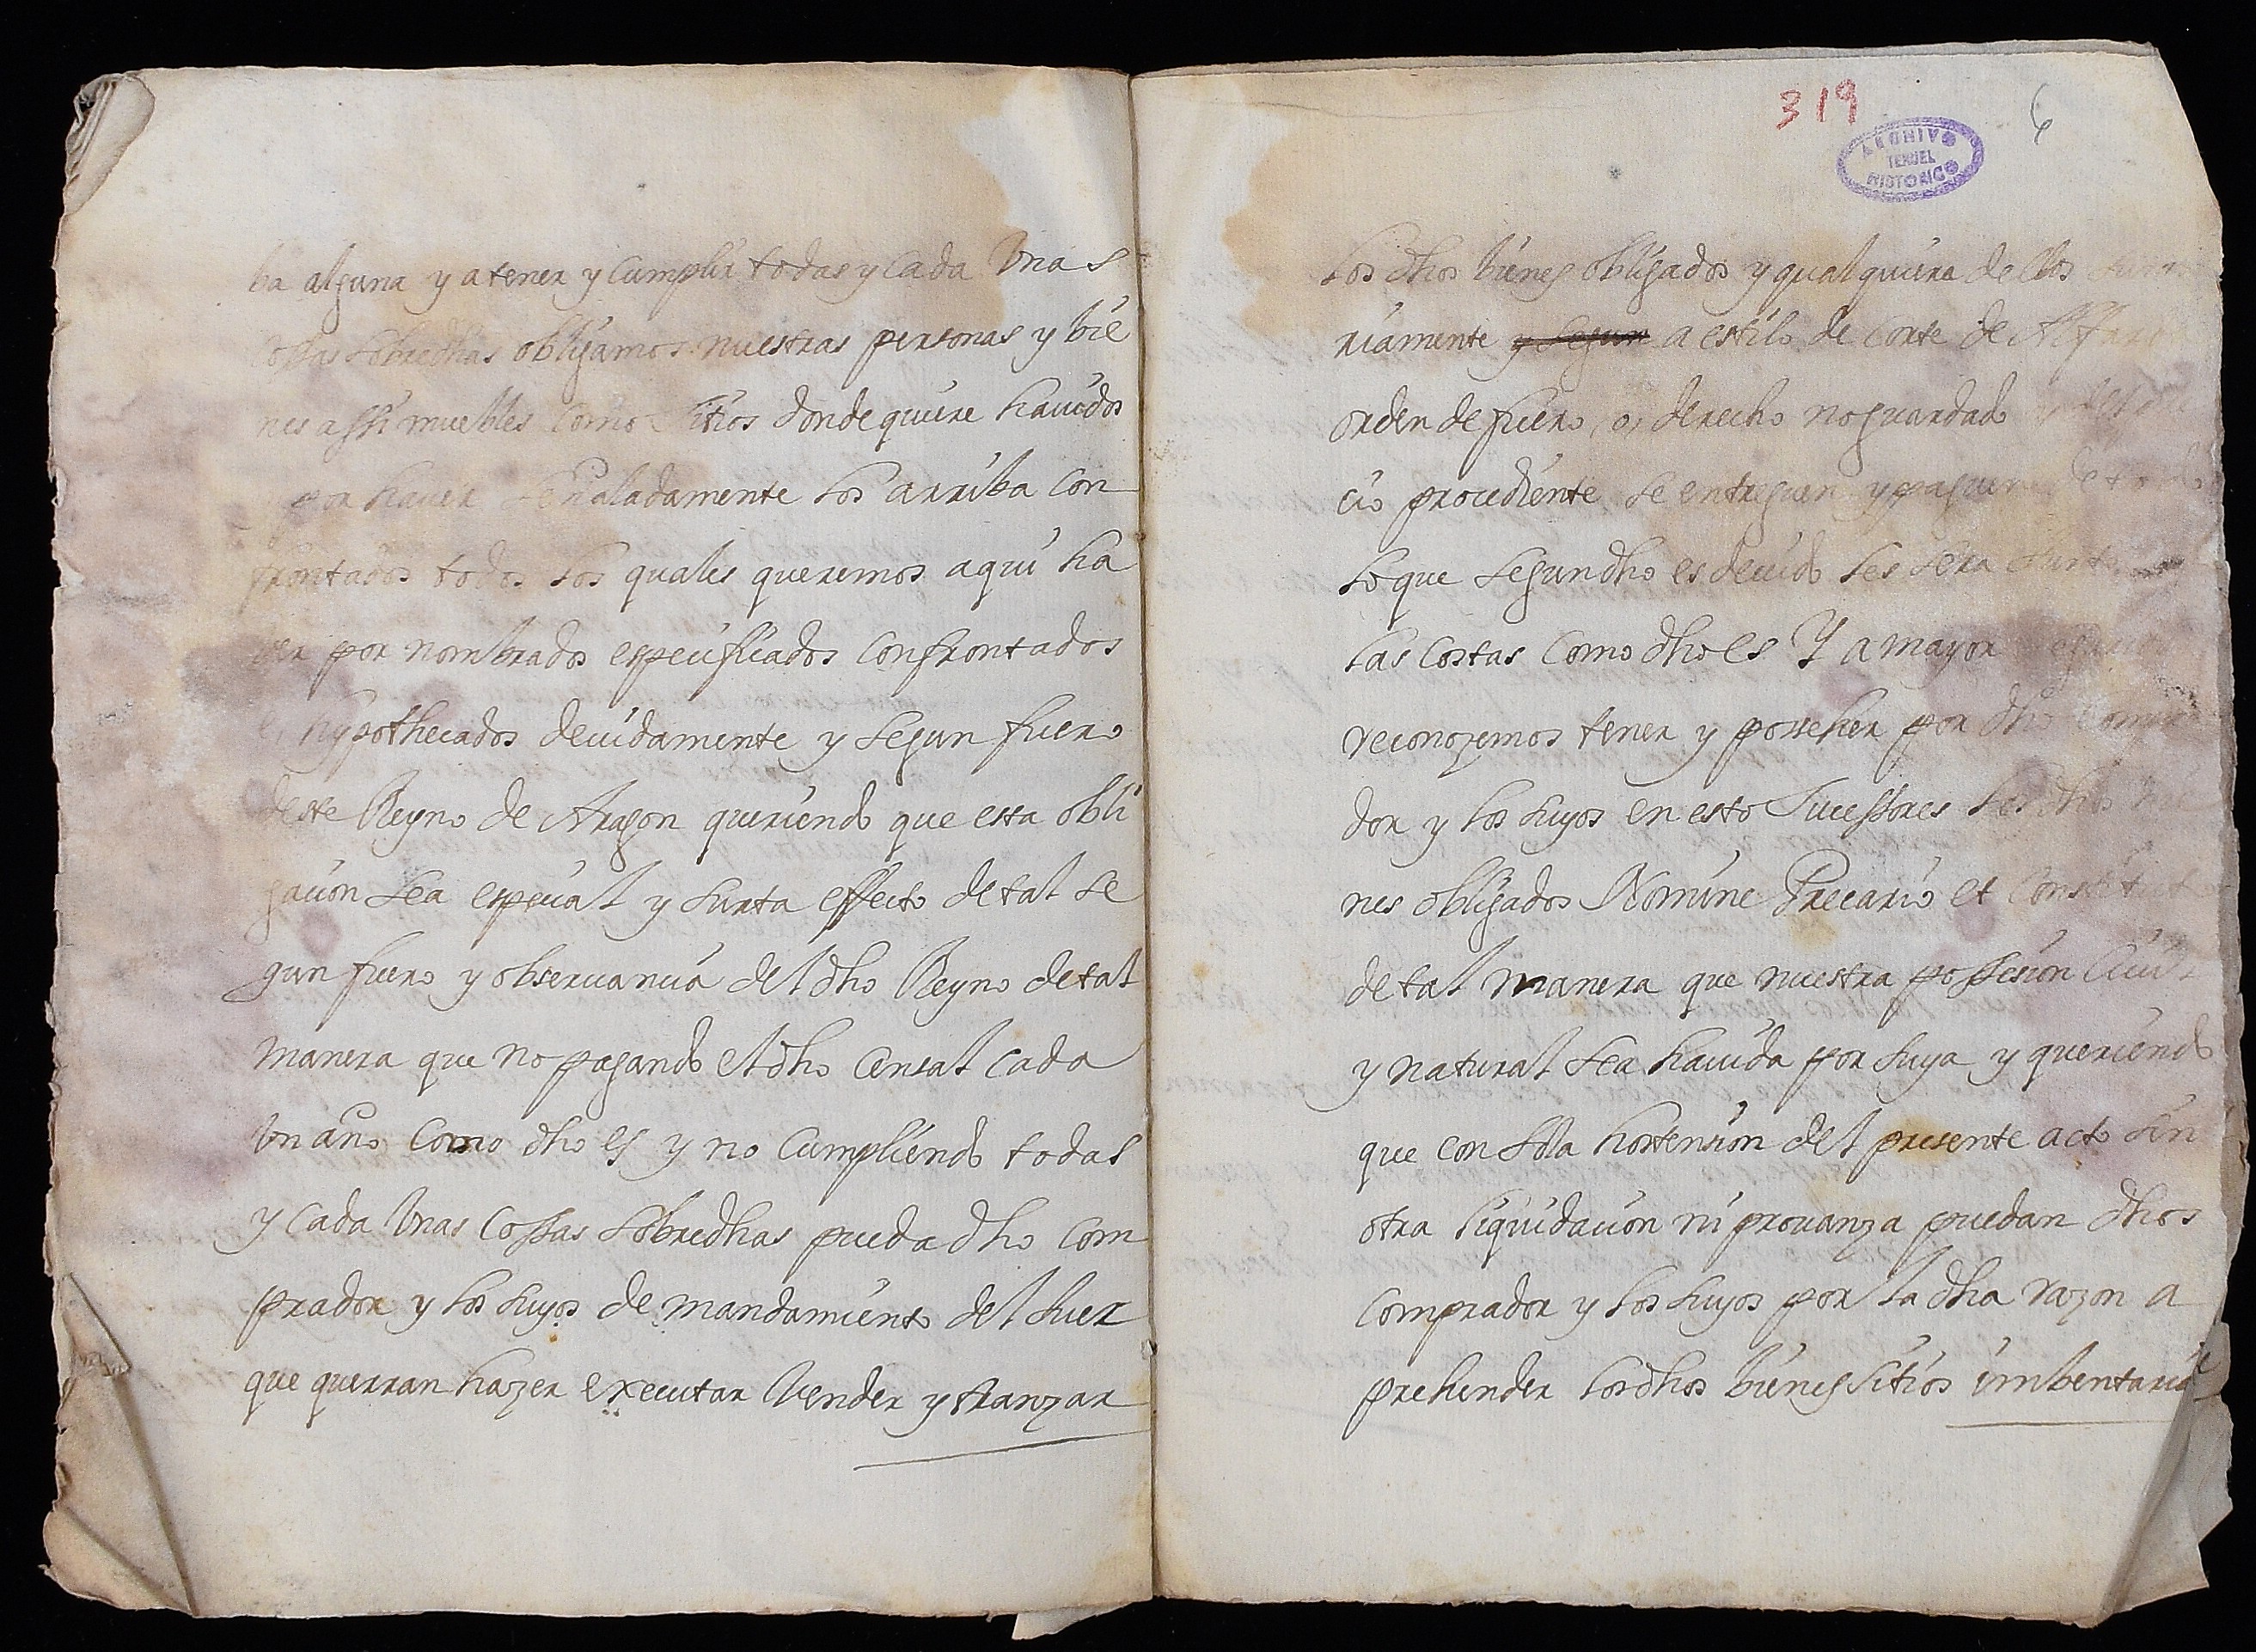 ba alguna y a tener y cumplir todas y cada Unas
cosas sobredhas obligamos nuestras personas y bie
nes assi muebles como sitios donde quiere hauidos
por hauer señaladamente los arriba con
frontados todos los quales queremos aqui ha
uer por nombrados especificados confrontados
hypothecados deuidamente y segun fuero
deste Reyno de Aragon queriendo que esta obli
gacion sea especial y surta effecto de tal se
gun fuero y obseruancia del dho Reyno de tal
manera que no pagando el dho censal cada
Un año como dho es y no cumpliendo todas
y cada Unas cossas sobredhas pueda dho com
prador y los suyos de mandamiento del Juez
que querran hazer executar Uender y tranzar
319
6
ARCHIVO
TERUEL
HISTORICO
los dhos bienes obligados y qualquiera dellos
riamente y segun a estilo de corte de Alfarda
orden de fuero, o, derecho no guardado
cio procediente se entreguen y paguen de todo
lo que segun dho es deuido les sera
las costas como dho es Y a mayor
reconozemos tener y posseher por dho compra
dor y los suyos en esto sucessores los dhos
nes obligados Nomine Precario et Constituto
de tal manera que nuestra possesion ciuil
y natural sea hauida por suya y queriendo
que con sola hostension del presente acto sin
otra liquidacion ni prouanza puedan dhos
comprador y los suyos por la dha razon a
prehender los dhos bienes sitios imbentariar